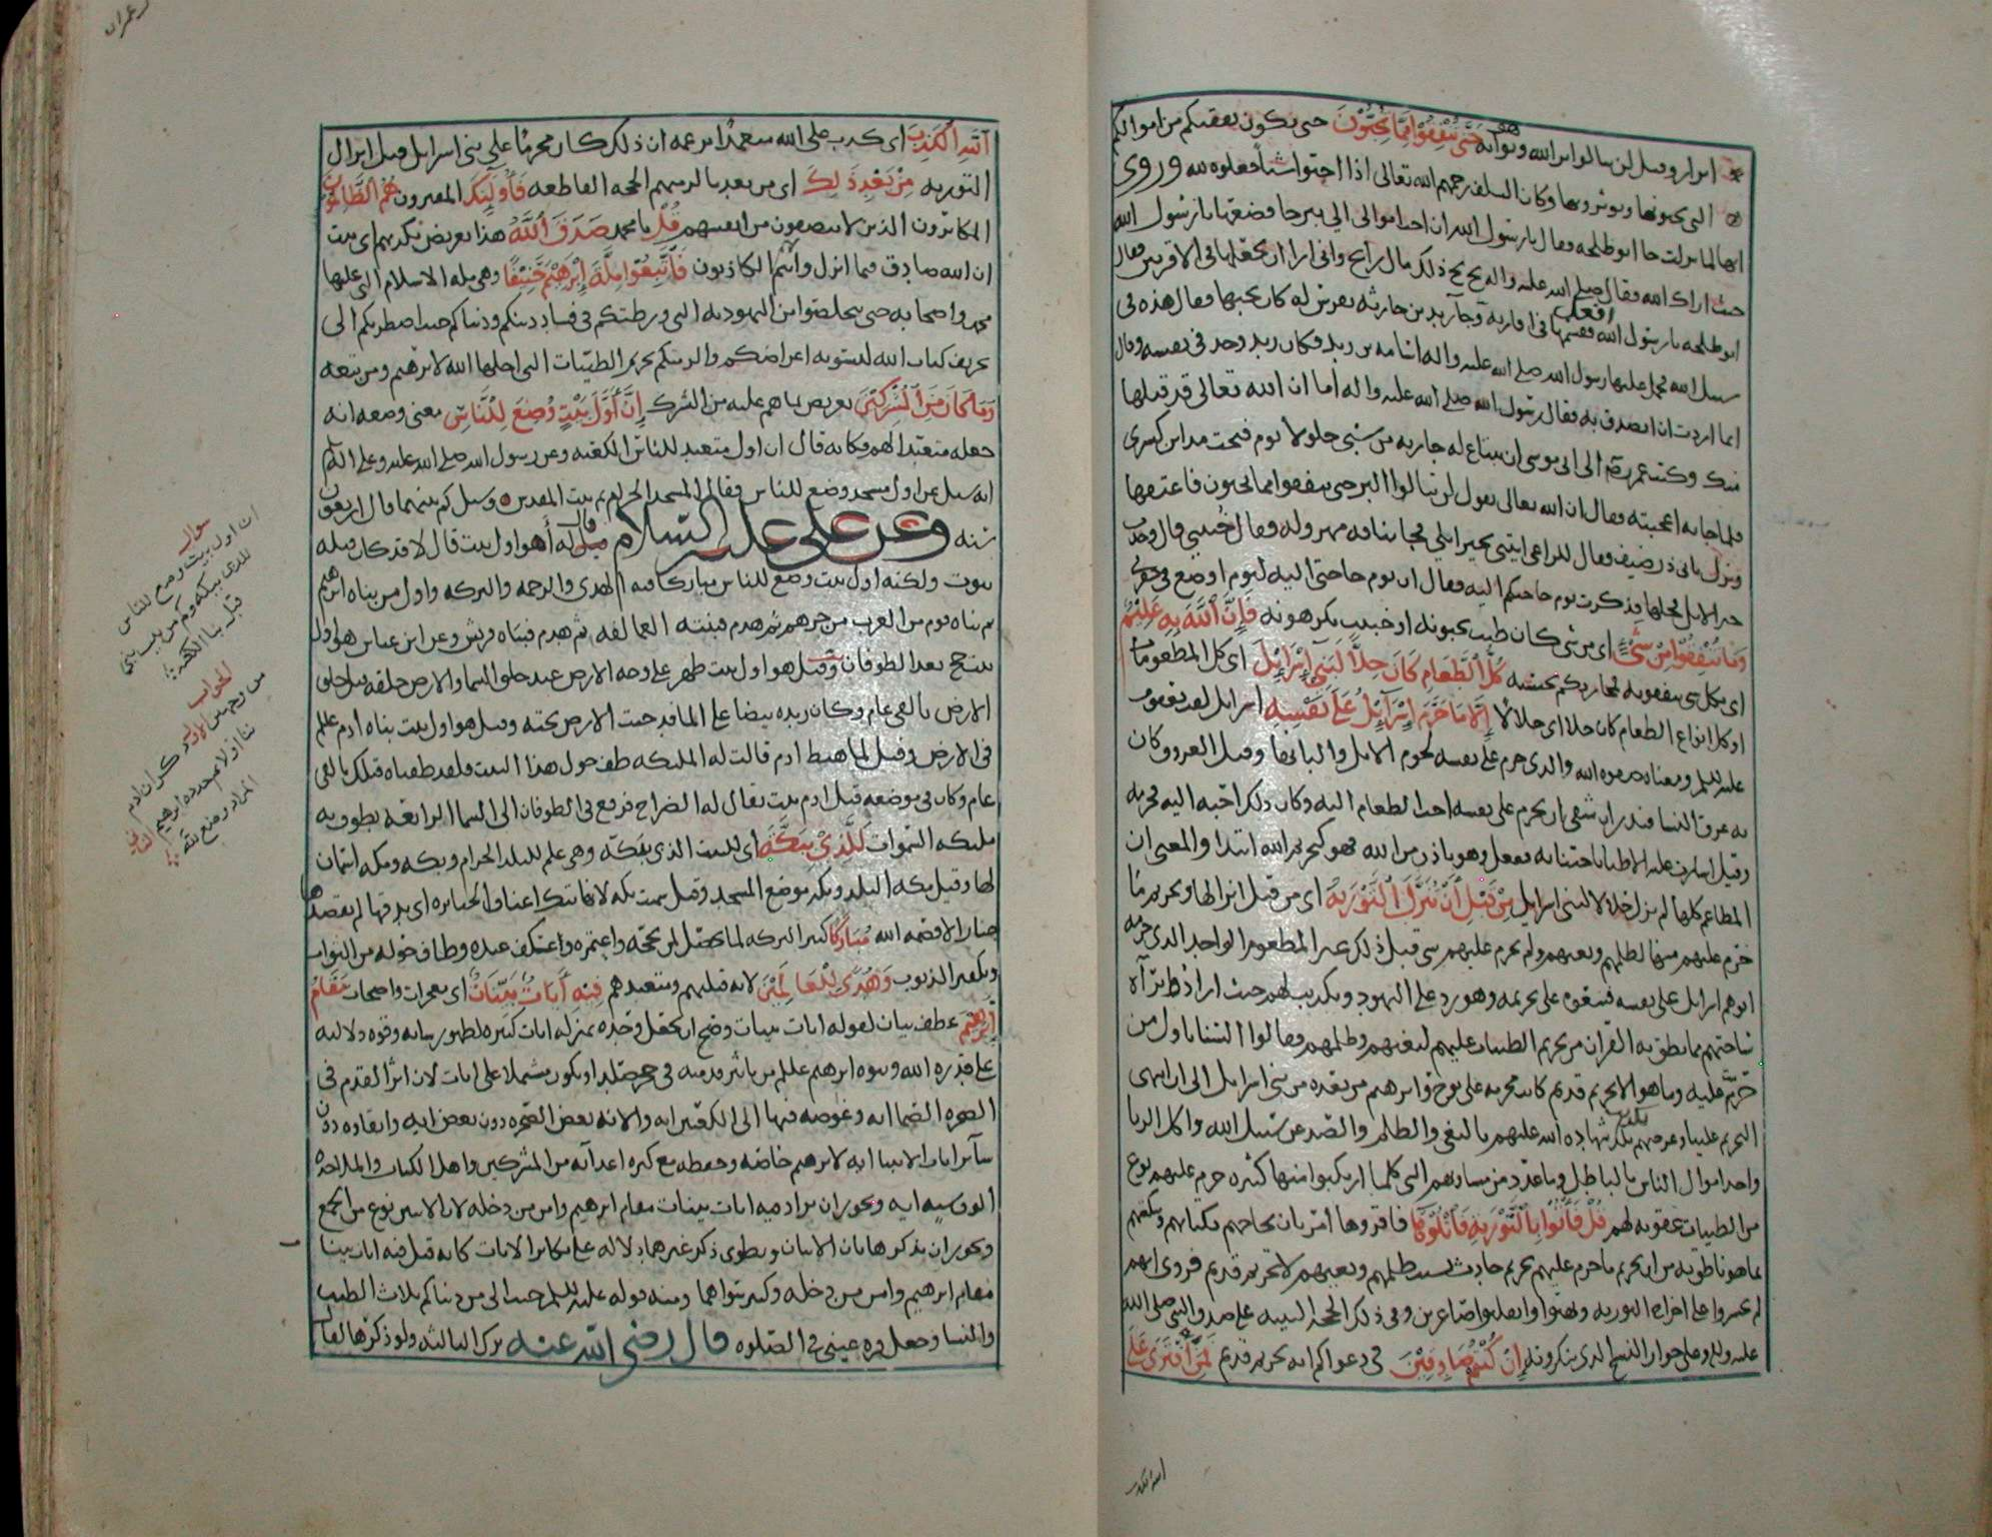 ابرارا وقيل لن تنالوا بر الله وهو ثوابه حَتَّى تُنْفِقُوا مِمَّا تُحِبُّونَ حتى تكون نفقتكم من اموالكم
التى تحبونها وتوثرونها وكان السلف رحمهم الله تعالى اذا احبوا شيا جعلوه لله وروى
انها لما نزلت جا ابو طلحه فقال يا رسول الله ان احب اموالى الي بيرحا فضعها يا رسول الله
حيث اراك الله فقال صلى الله عليه واله بخ بخ ذلك مال رابح وانى ارا ان تجعلها فى الاقربين فقال
ابو طلحه افعل يا رسول الله فقسمها فى اقاربه وجآ زيد بن حارثه بفرس له كان يحبها فقال هذه فى
سبيل الله فحمل عليها رسول الله صلى الله عليه واله اسامه بن زيد فكان زيد وجد فى نفسه وقال
انما اردت ان اتصدق به فقال رسول الله صلى الله عليه واله أما ان الله تعالى قد قبلها
منك وكتب عمر رضى الى ابى موسى ان يبتاع له جاريه من سبى جلولا يوم فتحت مداين كسرى
فلما جاته اعجبته فقال ان الله تعالى يقول لن تنالوا البر حتى تنفقوا مما تحبون فاعتقها
ونزل بابى ذر ضيف فقال للراعى ايتنى بخير ابلي فجا بناقه مهزوله فقال خنتنى قال وجدت
خير الابل فحلها فذكرت يوم حاجتكم اليه فقال ان يوم حاجتى اليه ليوم اوضع فى حفرتى
وَمَا تُنْفِقُوا مِنْ شَيْءٍ اى من شى كان طيب تحبونه او خبيث تكرهونه فَإِنَّ اللَّهَ بِهِ عَلِيمٌ
اى بكل شى تنفقونه فمجازيكم بحسبه كُلُّ الطَّعَامِ كَانَ حِلًّا لِبَنِي إِسْرَائِيلَ اى كل المطعومات
او كل انواع الطعام كان حلا اى حلالا إِلَّا مَا حَرَّمَ إِسْرَآئِيلُ عَلَى نَفْسِهِ اسرائل لقب يعقوب
عليه السلم ومعناه صفوه الله والذى حرم على نفسه لحوم الابل والبانها وقيل العروق وكان
به عرق النسا فنذر ان شفى ان يحرم على نفسه احب الطعام اليه وكان ذلك احبه اليه فحرمه
وقيل اشارت عليه الاطبا باجتنابه ففعل وهو باذن من الله فهو كتحريم الله ابتدا والمعنى ان
المطاعم كلها لم تزل حلالا لبنى اسرايل مِنْ قَبْلِ أَنْ تُنَزَّلَ التَّوْرَيةُ اى من قبل انزالها وتحريم ما
حرم عليهم منها لظلمهم وبغيهم ولم يحرم عليهم شى قبل ذلك غير المطعوم الواحد الذى حرمه
ابوهم اسرايل على نفسه فتبعوه على تحريمه وهو رد على اليهود وتكذيب لهم حيث ارادوا برآة
ساحتهم مما نطق به القران من تحريم الطيبات عليهم لبغيهم وظلمهم وقالوا السنا باول من
حرمت عليه وما هو الا تحريم قديم كانت محرمه على نوح وابرهيم من بعده من بنى اسرايل الى ان انتهى
التحريم علينا وغرضهم تكذيب شهاده الله عليهم بالبغى والظلم والصد عن سبيل الله واكل الربا
واخذ اموال الناس بالباطل وما عدد من مساويهم التى كلما ارتكبوا منها كبيره حرم عليهم نوع
من الطيبات عقوبه لهم قُلْ فَأْتُوا بِالتَّوْرَيةِ فَاتْلُوهَا فاقروها امر بان يحاجهم بكتابهم ويبكتهم
بما هو ناطق به من ان تحريم ما حرم عليهم تحريم حادث بسبب ظلمهم وبغيهم لا تحريم قديم فروى انهم
لم يجسروا على اخراج التوريه وبهتوا وانقلبوا صاغرين وفى ذلك الحجة البينه على صدق النبى صلى الله
عليه واله وعلى جواز النسخ الذى ينكرونه إِنْ كُنْتُمْ صَادِقِينَ فى دعواكم انه تحريم قديم فَمَنِ افْتَرَى عَلَى
الله الكذب
ل عمران
اللَّهِ الْكَذِبَ اى كذب على الله متعمدا بزعمه ان ذلك كان محرما على بنى اسرايل قبل انزال
التوريه مِنْ بَعْدِ ذَلِكَ اى من بعد ما لزمتهم الحجه القاطعه فَأُولَئِكَ المفترون هُمُ الظَّالِمُونَ
المكابرون الذين لا ينصفون من انفسهم قُلْ يا محمد صَدَقَ اللَّهُ هذا تعريض بكذبهم اى ثبت
ان الله صادق فيما انزل وانتم الكاذبون فَاتَّبِعُوا مِلَّةَ إِبْرَهِيمَ حَنِيفًا وهى مله الاسلام التى عليها
محمد واصحابه حتى تتخلصوا من اليهوديه التى ورطتكم فى فساد دينكم ودنياكم حيث اضطرتكم الى
تحريف كتاب الله لتسويه اغراضكم والزمتكم تحريم الطيبات التى احلها الله لابرهيم ومن تبعه
وَمَا كَانَ مِنَ الْمُشْرِكِينَ تعريض بما هم عليه من الشرك إِنَّ أَوَّلَ بَيْتٍ وُضِعَ لِلنَّاسِ معنى وضعه انه
جعله متعبدا لهم فكانه قال ان اول متعبد للناس الكعبه وعن رسول الله صلى الله عليه وعلى اله وسلم
انه سيل عن اول مسجد وضع للناس فقال المسجد الحرام ثم بيت المقدس وسيل كم بينهما قال اربعون
سنه وعن على عليه السلام قال له أهو اول بيت قال لا قد كان قبله
بيوت ولكنه اول بيت وضع للناس مباركا فيه الهدى والرحمه والبركه واول من بناه ابرهيم
ثم بناه قوم من العرب من جرهم ثم هدم فبنته العمالقه ثم هدم فبناه قريش وعن ابن عباس هو اول
بيت حج بعد الطوفان وقيل هو اول بيت ظهر على وجه الارض عند خلق السما والارض خلقه قبل خلق
الارض بالفى عام وكان زبده بيضا على الما فدحيت الارض تحته وقيل هو اول بيت بناه ادم علم
فى الارض وقيل لما هبط ادم قالت له المليكه طف حول هذا البيت فلقد طفناه قبلك بالفى
عام وكان فى موضعه قبل ادم بيت يقال له الضراح فرفع فى الطوفان الى السما الرابعه يطوف به
مليكه السموات لَلَّذِي بِبَكَّةَ أى للبيت الذى ببكة وهى علم للبلد الحرام وبكه ومكه اسمان
لها وقيل مكه البلد وبكه موضع المسجد وقيل سميت بكه لانها تبك اعناق الجبابره اى تدقها لم يقصدها
جبار الا قصمه الله مُبَارَكًا كثير البركه لما يحصل لمن حجه واعتمره واعتكف عنده وطاف حوله من الثواب
وتكفير الذنوب وَهُدًى لِلْعَالَمِينَ لانه قبلتهم ومتعبدهم فِيهِ آيَاتٌ بَيِّنَاتٌ اى معجزات واضحات مَقَامُ
إِبْرَهِيمَ عطف بيان لقوله ايات بينات وصح ان يجعل وحده بمنزله ايات كثيره لظهور شانه وقوه دلالته
على قدره الله ونبوه ابرهيم علم من تاثير قدميه فى حجر صلد او يكون مشتملا على ايات لان اثر القدم فى
الصخره الصما ايه وغوصه فيها الى الكعبين ايه والانه بعض الصخره دون بعض ايه وابقاوه دون
سآير ايات الانبيا ايه لابرهيم خاصه وحفظه مع كثره اعدآئه من المشركين واهل الكتاب والملاحده
الوف سنه ايه ويجوز ان يراد فيه ايات بينات مقام ابرهيم وامن من دخله لان الاثنين نوع من الجمع
ويجوز ان يذكر هاتان الايتان ويطوى ذكر غيرهما دلاله على تكاثر الايات كانه قيل فيه ايات بينات
مقام ابرهيم وامن من دخله وكثير سواهما ومنه قوله عليه السلم حبب الى من دنياكم ثلاث الطيب
والنسا وجعل قره عينى فى الصلوه قال رضى الله عنه ترك الثالثه ولو ذكرها لقال
سوال
ان اول بيت وضع للناس
للذى ببكه وكم من بيت بنى
قبل بنا الكعبة
الجواب
من وجهين